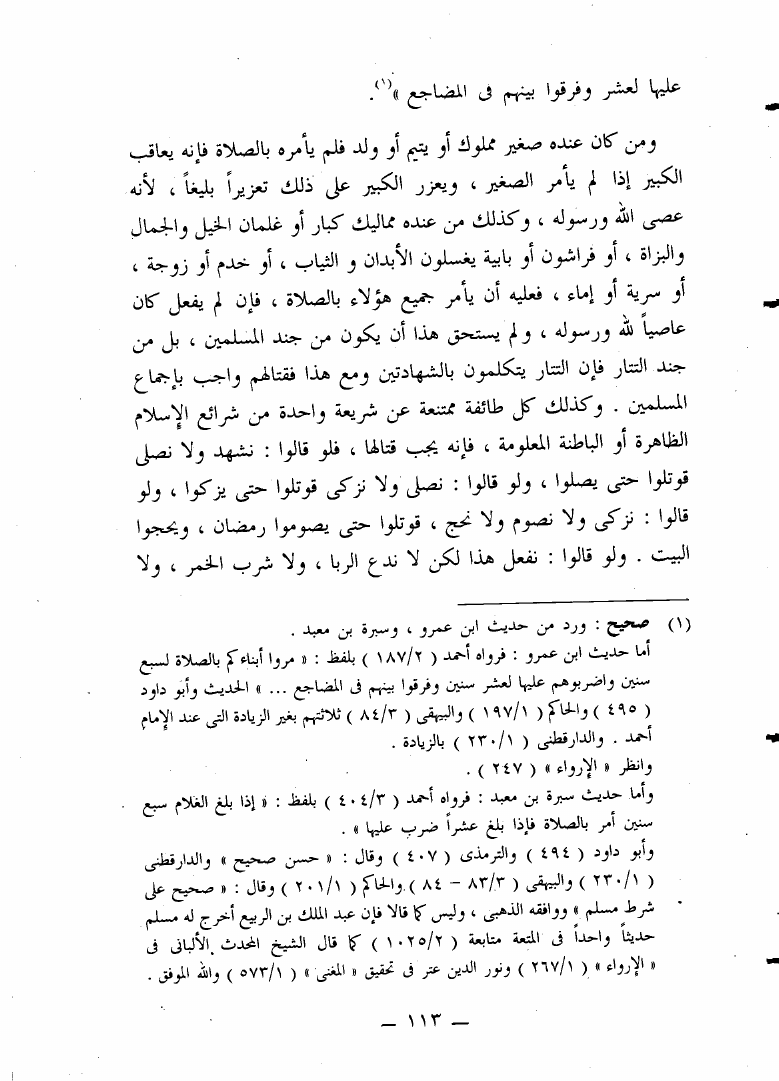 عليها لعشر وفرقوا بينهم فى المضاجع »(١).
ومن كان عنده صغير مملوك أو يتيم أو ولد فلم يأمره بالصلاة فإنه يعاقب
الكبير إذا لم يأمر الصغير ، ويعزر الكبير على ذلك تعزيراً بليغاً ، لأنه
عصى الله ورسوله ، وكذلك من عنده مماليك كبار أو غلمان الخيل والجمال
والبزاة ، أو فراشون أو بابية يغسلون الأبدان و الثياب ، أو خدم أو زوجة ،
أو سرية أو إماء ، فعليه أن يأمر جميع هؤلاء بالصلاة ، فإن لم يفعل كان
عاصياً لله ورسوله ، ولم يستحق هذا أن يكون من جند المسلمين ، بل من
جند التتار فإن التتار يتكلمون بالشهادتين ومع هذا فقتالهم واجب بإجماع
المسلمين . وكذلك كل طائفة ممتنعة عن شريعة واحدة من شرائع الإسلام
الظاهرة أو الباطنة المعلومة ، فإنه يجب قتالها ، فلو قالوا : نشهد ولا نصلى
قوتلوا حتى يصلوا ، ولو قالوا : نصلى ولا نزكى قوتلوا حتى يزكوا ، ولو
قالوا : نزكى ولا نصوم ولا نحج ، قوتلوا حتى يصوموا رمضان ، ويحجوا
البيت . ولو قالوا : نفعل هذا لكن لا ندع الربا ، ولا شرب الخمر ، ولا
(١) صحيح : ورد من حديث ابن عمرو ، وسبرة بن معبد .
أما حديث ابن عمرو : فرواه أحمد ( ١٨٧/٢ ) بلفظ : « مروا أبناءكم بالصلاة لسبع
سنين واضربوهم عليها لعشر سنين وفرقوا بينهم فى المضاجع ... » الحديث وأبو داود
( ٤٩٥ ) والحاكم ( ١٩٧/١ ) والبيهقى ( ٨٤/٣ ) ثلاثتهم بغير الزيادة التى عند الإمام
أحمد . والدارقطنى ( ٢٣٠/١ ) بالزيادة .
وانظر « الإرواء » ( ٢٤٧ ) .
وأما حديث سبرة بن معبد : فرواه أحمد ( ٤٠٤/٣ ) بلفظ : « إذا بلغ الغلام سبع
سنين أمر بالصلاة فإذا بلغ عشراً ضرب عليها » .
وأبو داود ( ٤٩٤ ) والترمذى ( ٤٠٧ ) وقال : « حسن صحيح » والدارقطنى
( ٢٣٠/١ ) والبيهقى ( ٨٣/٣ – ٨٤ ) والحاكم ( ٢٠١/١ ) وقال : « صحيح على
شرط مسلم » ووافقه الذهبى ، وليس كما قالا فإن عبد الملك بن الربيع أخرج له مسلم
حديثاً واحداً فى المتعة متابعة ( ١٠٢٥/٢ ) كما قال الشيخ المحدث الألبانى فى
« الإرواء » ( ٢٦٧/١ ) ونور الدين عتر فى تحقيق « المغنى » ( ٥٧٣/١ ) والله الموفق .
– ١١٣ –